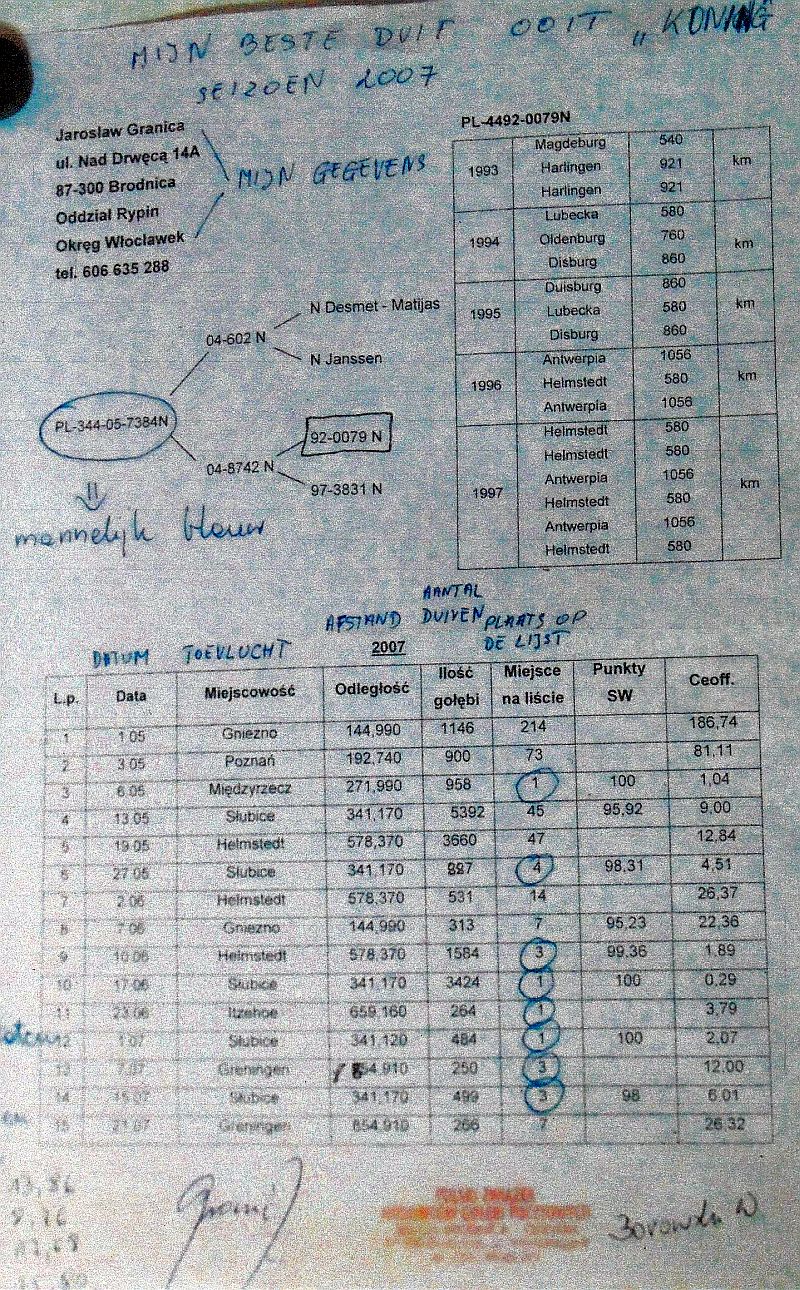 MIJN BESTE DUIF OOIT „KONING
SEIZOEN 2007
Jarosław Granica
ul. Nad Drwęcą 14A
87-300 Brodnica
Oddział Rypin
Okręg Włocławek
tel. 606 635 288
MIJN GEGEVENS
PL-4492-0079N
1993 Magdeburg 540 km
Harlingen 921
Harlingen 921
1994 Lubecka 580 km
Oldenburg 760
Disburg 860
1995 Duisburg 860 km
Lubecka 580
Disburg 860
1996 Antwerpia 1056 km
Helmstedt 580
Antwerpia 1056
1997 Helmstedt 580 km
Helmstedt 580
Antwerpia 1056
Helmstedt 580
Antwerpia 1056
Helmstedt 580
N Desmet - Matijas
04-602 N
N Janssen
PL-344-05-7384N
92-0079 N
04-8742 N
97-3831 N
mannelyk blauw
DATUM TOEVLUCHT AFSTAND AANTAL DUIVEN PLAATS OP DE LIJST
2007
L.p. Data Miejscowość Odległość Ilość gołębi Miejsce na liście Punkty SW Ceoff.
1 1.05 Gniezno 144,990 1146 214 186,74
2 3.05 Poznań 192,740 900 73 81,11
3 6.05 Międzyrzecz 271,990 958 1 100 1,04
4 13.05 Słubice 341,170 5392 45 95,92 9,00
5 19.05 Helmstedt 578,370 3660 47 12,84
6 27.05 Słubice 341,170 887 4 98,31 4,51
7 2.06 Helmstedt 578,370 531 14 26,37
8 7.06 Gniezno 144,990 313 7 95,23 22,36
9 10.06 Helmstedt 578,370 1584 3 99,36 1,89
10 17.06 Słubice 341,170 3424 1 100 0,29
11 23.06 Itzehoe 659,160 264 1 3,79
12 1.07 Słubice 341,120 484 1 100 2,07
13 7.07 Greningen 854,910 250 3 12,00
14 15.07 Słubice 341,170 499 3 98 6,01
15 21.07 Greningen 854,910 266 7 26,32